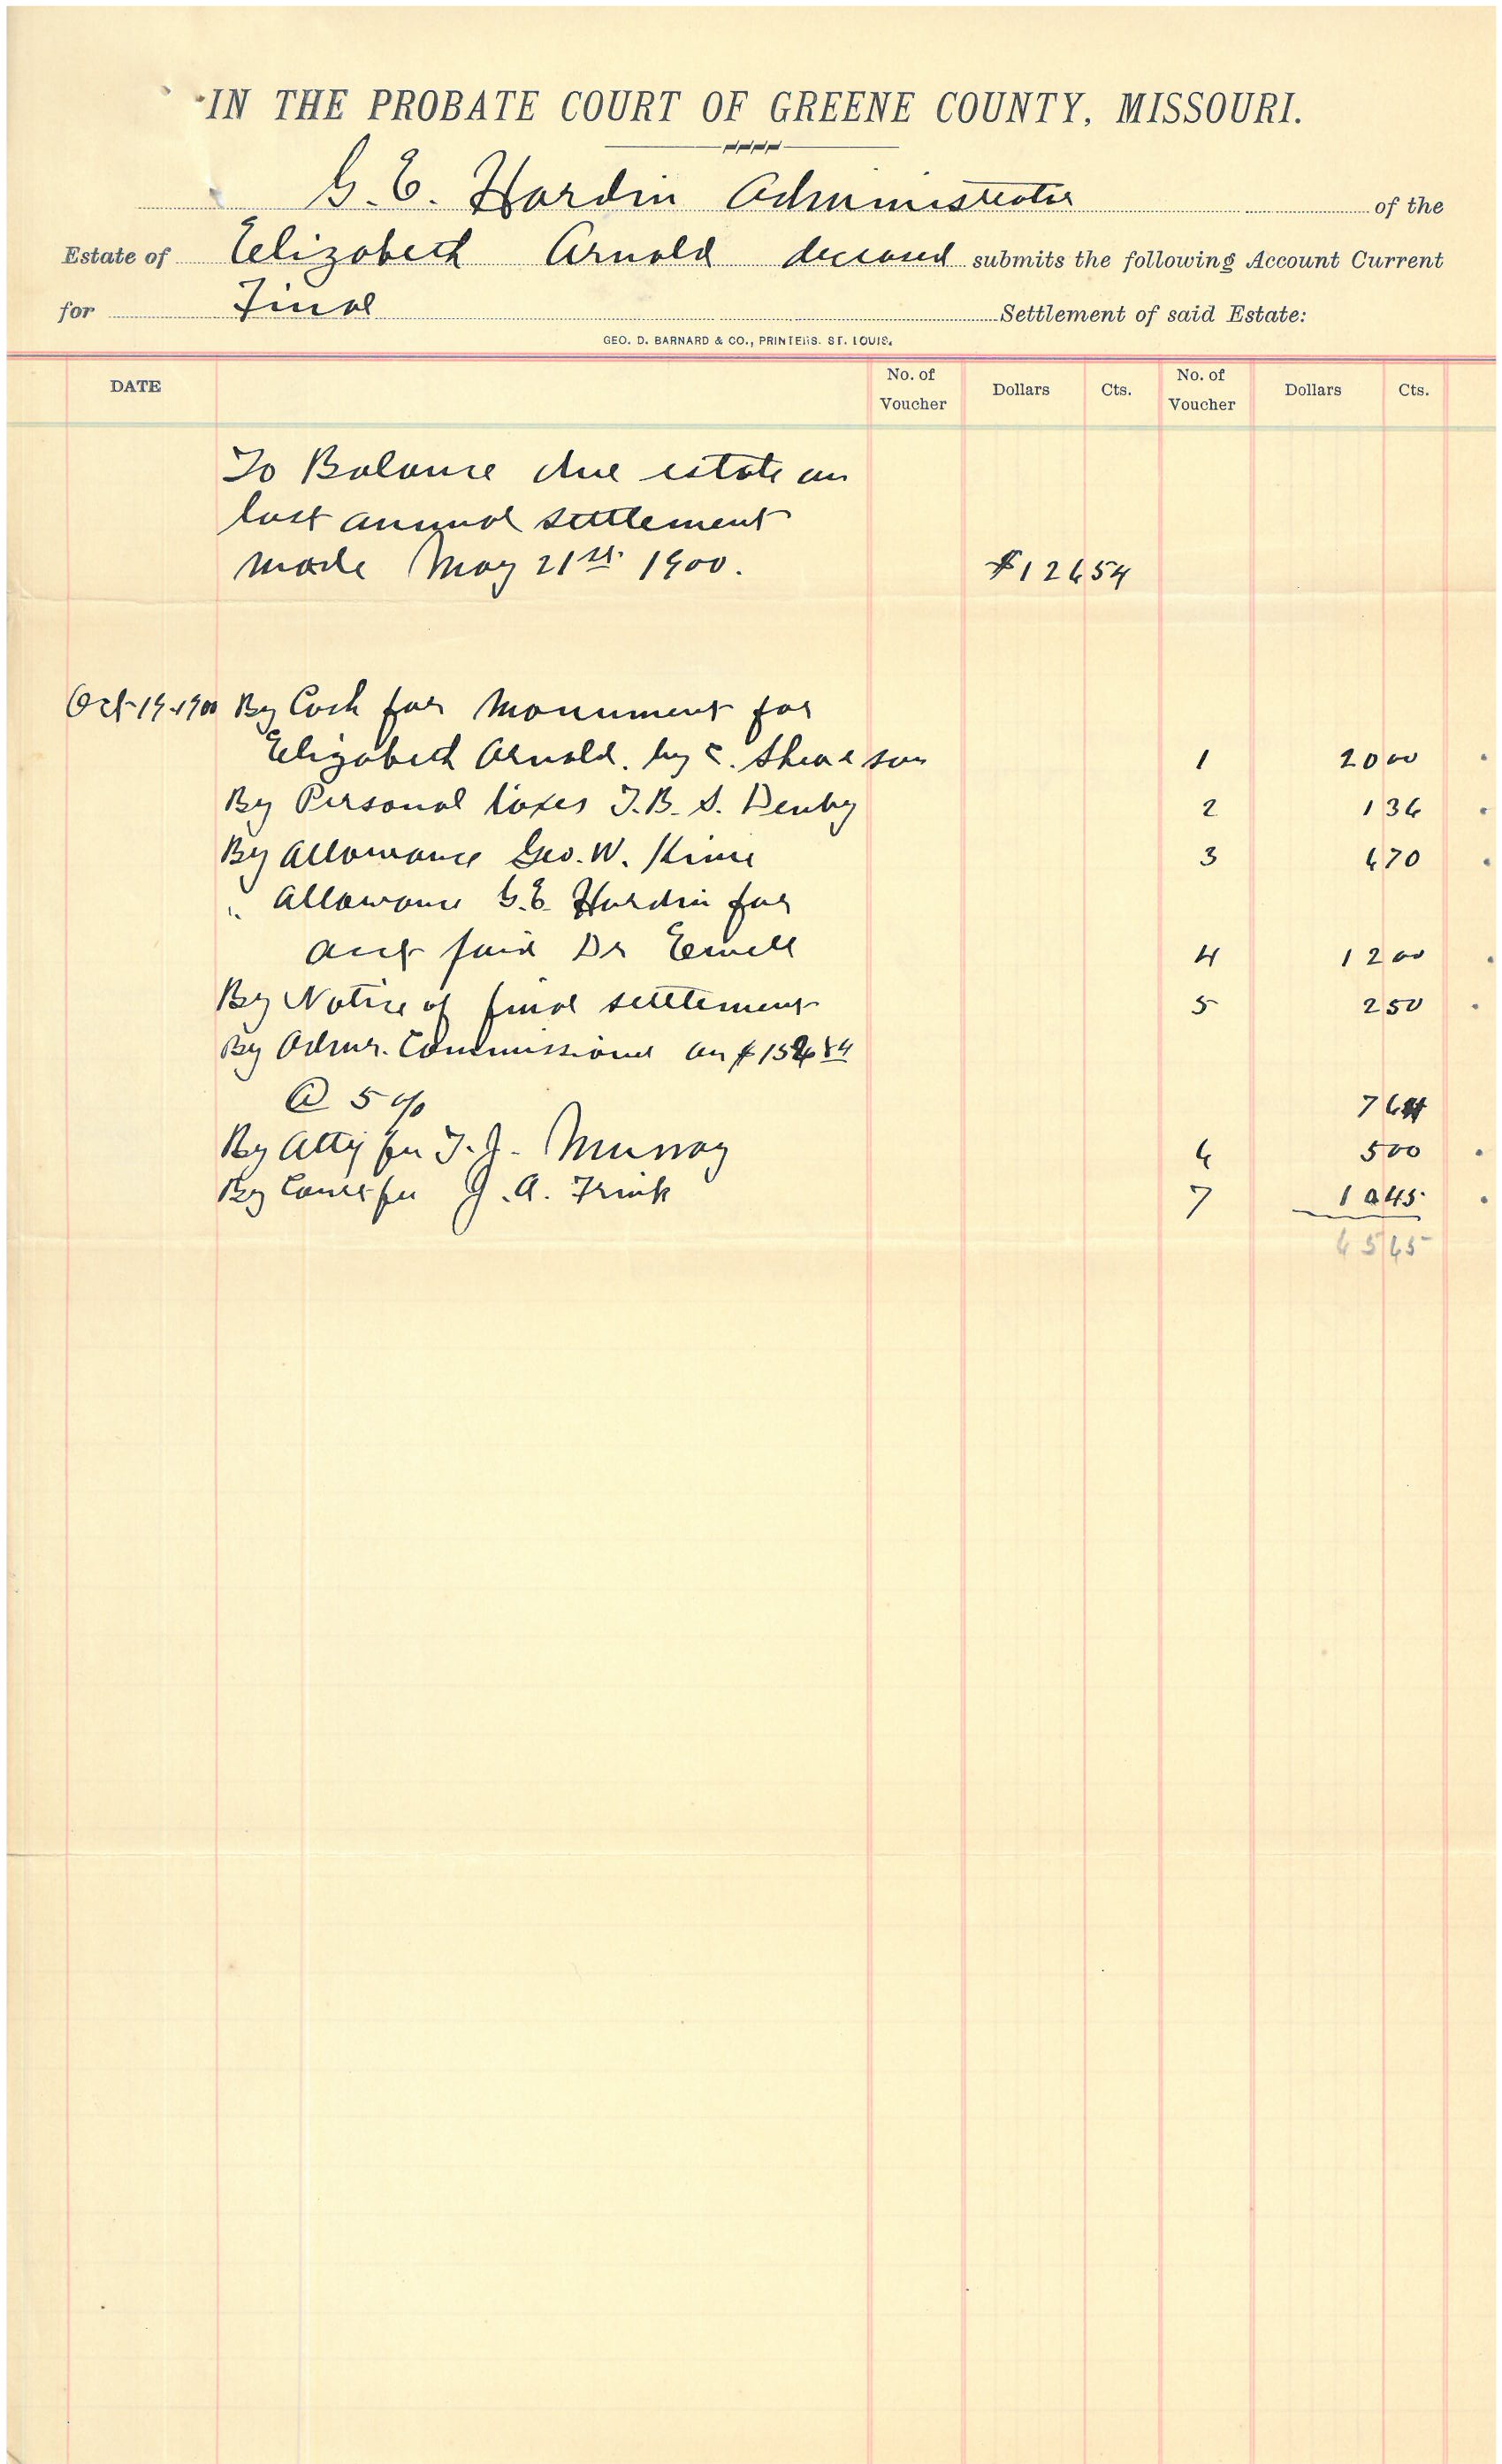 IN THE PROBATE COURT OF GREENE COUNTY, MISSOURI.
G. E. Hardin Administrator of the
Estate of Elizabeth Arnold deceased submits the following Account Current
for Final Settlement of said Estate:
GEO. D. BARNARD & CO., PRINTERS. ST. LOUIS.
DATE No. of Voucher Dollars Cts. No. of Voucher Dollars Cts.
To Balance due estate on
last annual settlement
made May 21st 1900. $126 54
Oct 19 1900 By Cash for Monument for
Elizabeth Arnold. by 1 20 00
By Personal taxes T. B. S. Denby 2 1 36
By Allowance Geo. W. 3 6 70
" Allowance G. E. Hardin for
acct paid Dr Ewell 4 12 00
By Notice of final settlement 5 2 50
By Admr. Commissions on $152 84
@ 5 % 7 64
By Atty fee T. J. Murray 6 5 00
By Court fee J. A. Frink 7 10 45
65 65